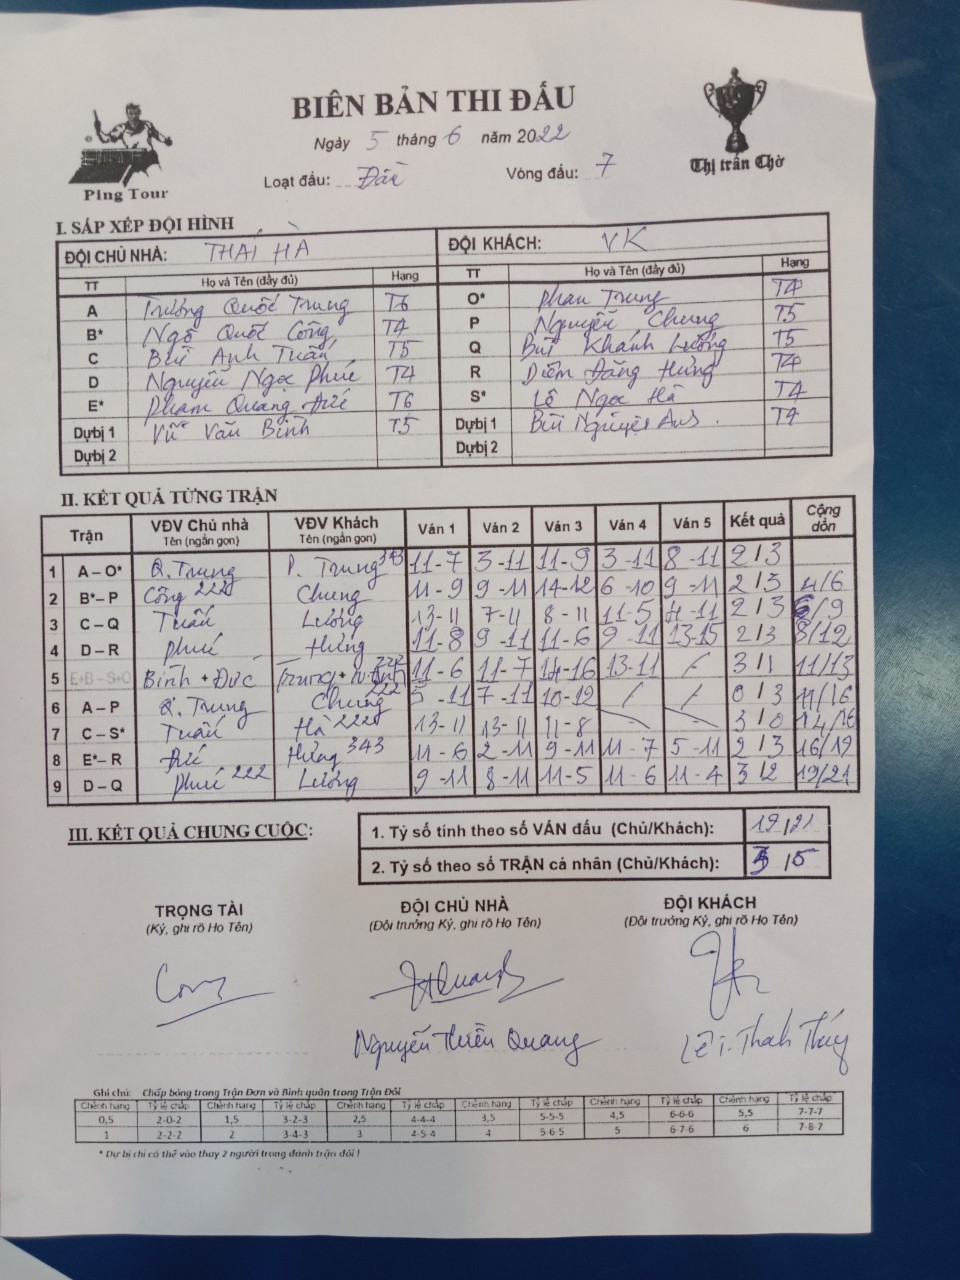 BIÊN BẢN THI ĐẤU
Ngày 5 tháng 6 năm 2022
Ping Tour
Thị trấn Chờ
Loạt đấu: Vòng đấu: 7
I. SẮP XẾP ĐỘI HÌNH
ĐỘI CHỦ NHÀ: THÁI HÀ ĐỘI KHÁCH: VK
TT Họ và Tên (đầy đủ) Hạng TT Họ và Tên (đầy đủ) Hạng
A Trương Quốc Trung T6 O* Phan Trung T4
B* Ngô Quốc Công T4 P Nguyễn Chung T5
C Bùi Anh Tuấn T5 Q Bùi Khánh Lương T5
D Nguyễn Ngọc Phúc T4 R Diêm Đăng Hưng T4
E* Phạm Quang Đức T6 S* Lê Ngọc Hà T4
Dự bị 1 Vũ Văn Bình T5 Dự bị 1 Bùi Nguyệt T4
Dự bị 2 Dự bị 2
II. KẾT QUẢ TỪNG TRẬN
Trận VĐV Chủ nhà Tên (ngắn gọn) VĐV Khách Tên (ngắn gọn) Ván 1 Ván 2 Ván 3 Ván 4 Ván 5 Kết quả Cộng dồn
1 A – O* Q. Trung P. Trung 343 11-7 3-11 11-9 3-11 8-11 2/3
2 B* – P Công 222 Chung 11-9 9-11 14-12 6-10 9-11 2/3 4/6
3 C – Q Tuấn Lương 13-11 7-11 8-11 11-5 11-11 2/3 6/9
4 D – R Phúc Hưng 11-8 9-11 11-6 9-11 13-15 2/3 8/12
5 E+B – S+O Bình + Đức Trung + 222 11-6 11-7 14-16 13-11 / 3/1 11/13
6 A – P Q. Trung Chung 222 5-11 7-11 10-12 / / 0/3 11/16
7 C – S* Tuấn Hà 222 13-11 13-11 11-8 3/0 14/16
8 E* – R Đức Hưng 343 11-6 2-11 9-11 11-7 5-11 2/3 16/19
9 D – Q Phúc 222 Lương 9-11 8-11 11-5 11-6 11-4 3/2 19/21
III. KẾT QUẢ CHUNG CUỘC:
1. Tỷ số tính theo số VÁN đấu (Chủ/Khách): 19/21
2. Tỷ số theo số TRẬN cá nhân (Chủ/Khách): /5
TRỌNG TÀI ĐỘI CHỦ NHÀ ĐỘI KHÁCH
(Ký, ghi rõ Họ Tên) (Đội trưởng Ký, ghi rõ Họ Tên) (Đội trưởng Ký, ghi rõ Họ Tên)
Nguyễn Thiên Quang Lê T. Thanh Thúy
Ghi chú: Chấp bóng trong Trận Đơn và Bình quân trong Trận Đôi
Chênh hạng Tỷ lệ chấp Chênh hạng Tỷ lệ chấp Chênh hạng Tỷ lệ chấp Chênh hạng Tỷ lệ chấp Chênh hạng Tỷ lệ chấp Chênh hạng Tỷ lệ chấp
0,5 2-0-2 1,5 3-2-3 2,5 4-4-4 3,5 5-5-5 4,5 6-6-6 5,5 7-7-7
1 2-2-2 2 3-4-3 3 4-5-4 4 5-6-5 5 6-7-6 6 7-8-7
* Dự bị chỉ có thể vào thay 2 người trong đánh trận đôi !